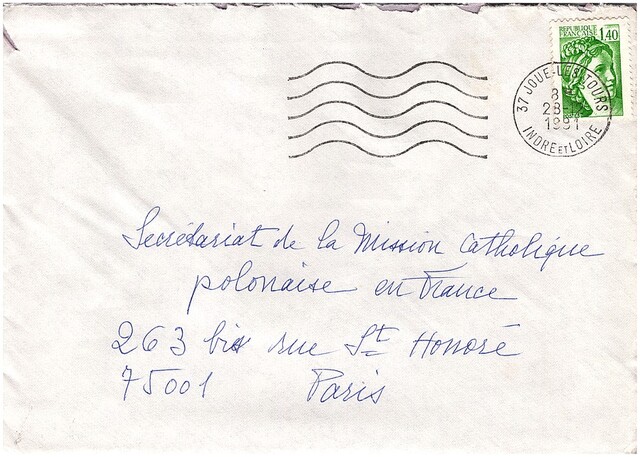 REPUBLIQUE
FRANÇAISE 1,40
37 JOUE-LES-TOURS
1981
INDRE ET LOIRE
Secrétariat de la Mission Catholique
polonaise en France
263 bis rue St Honoré
75001 Paris